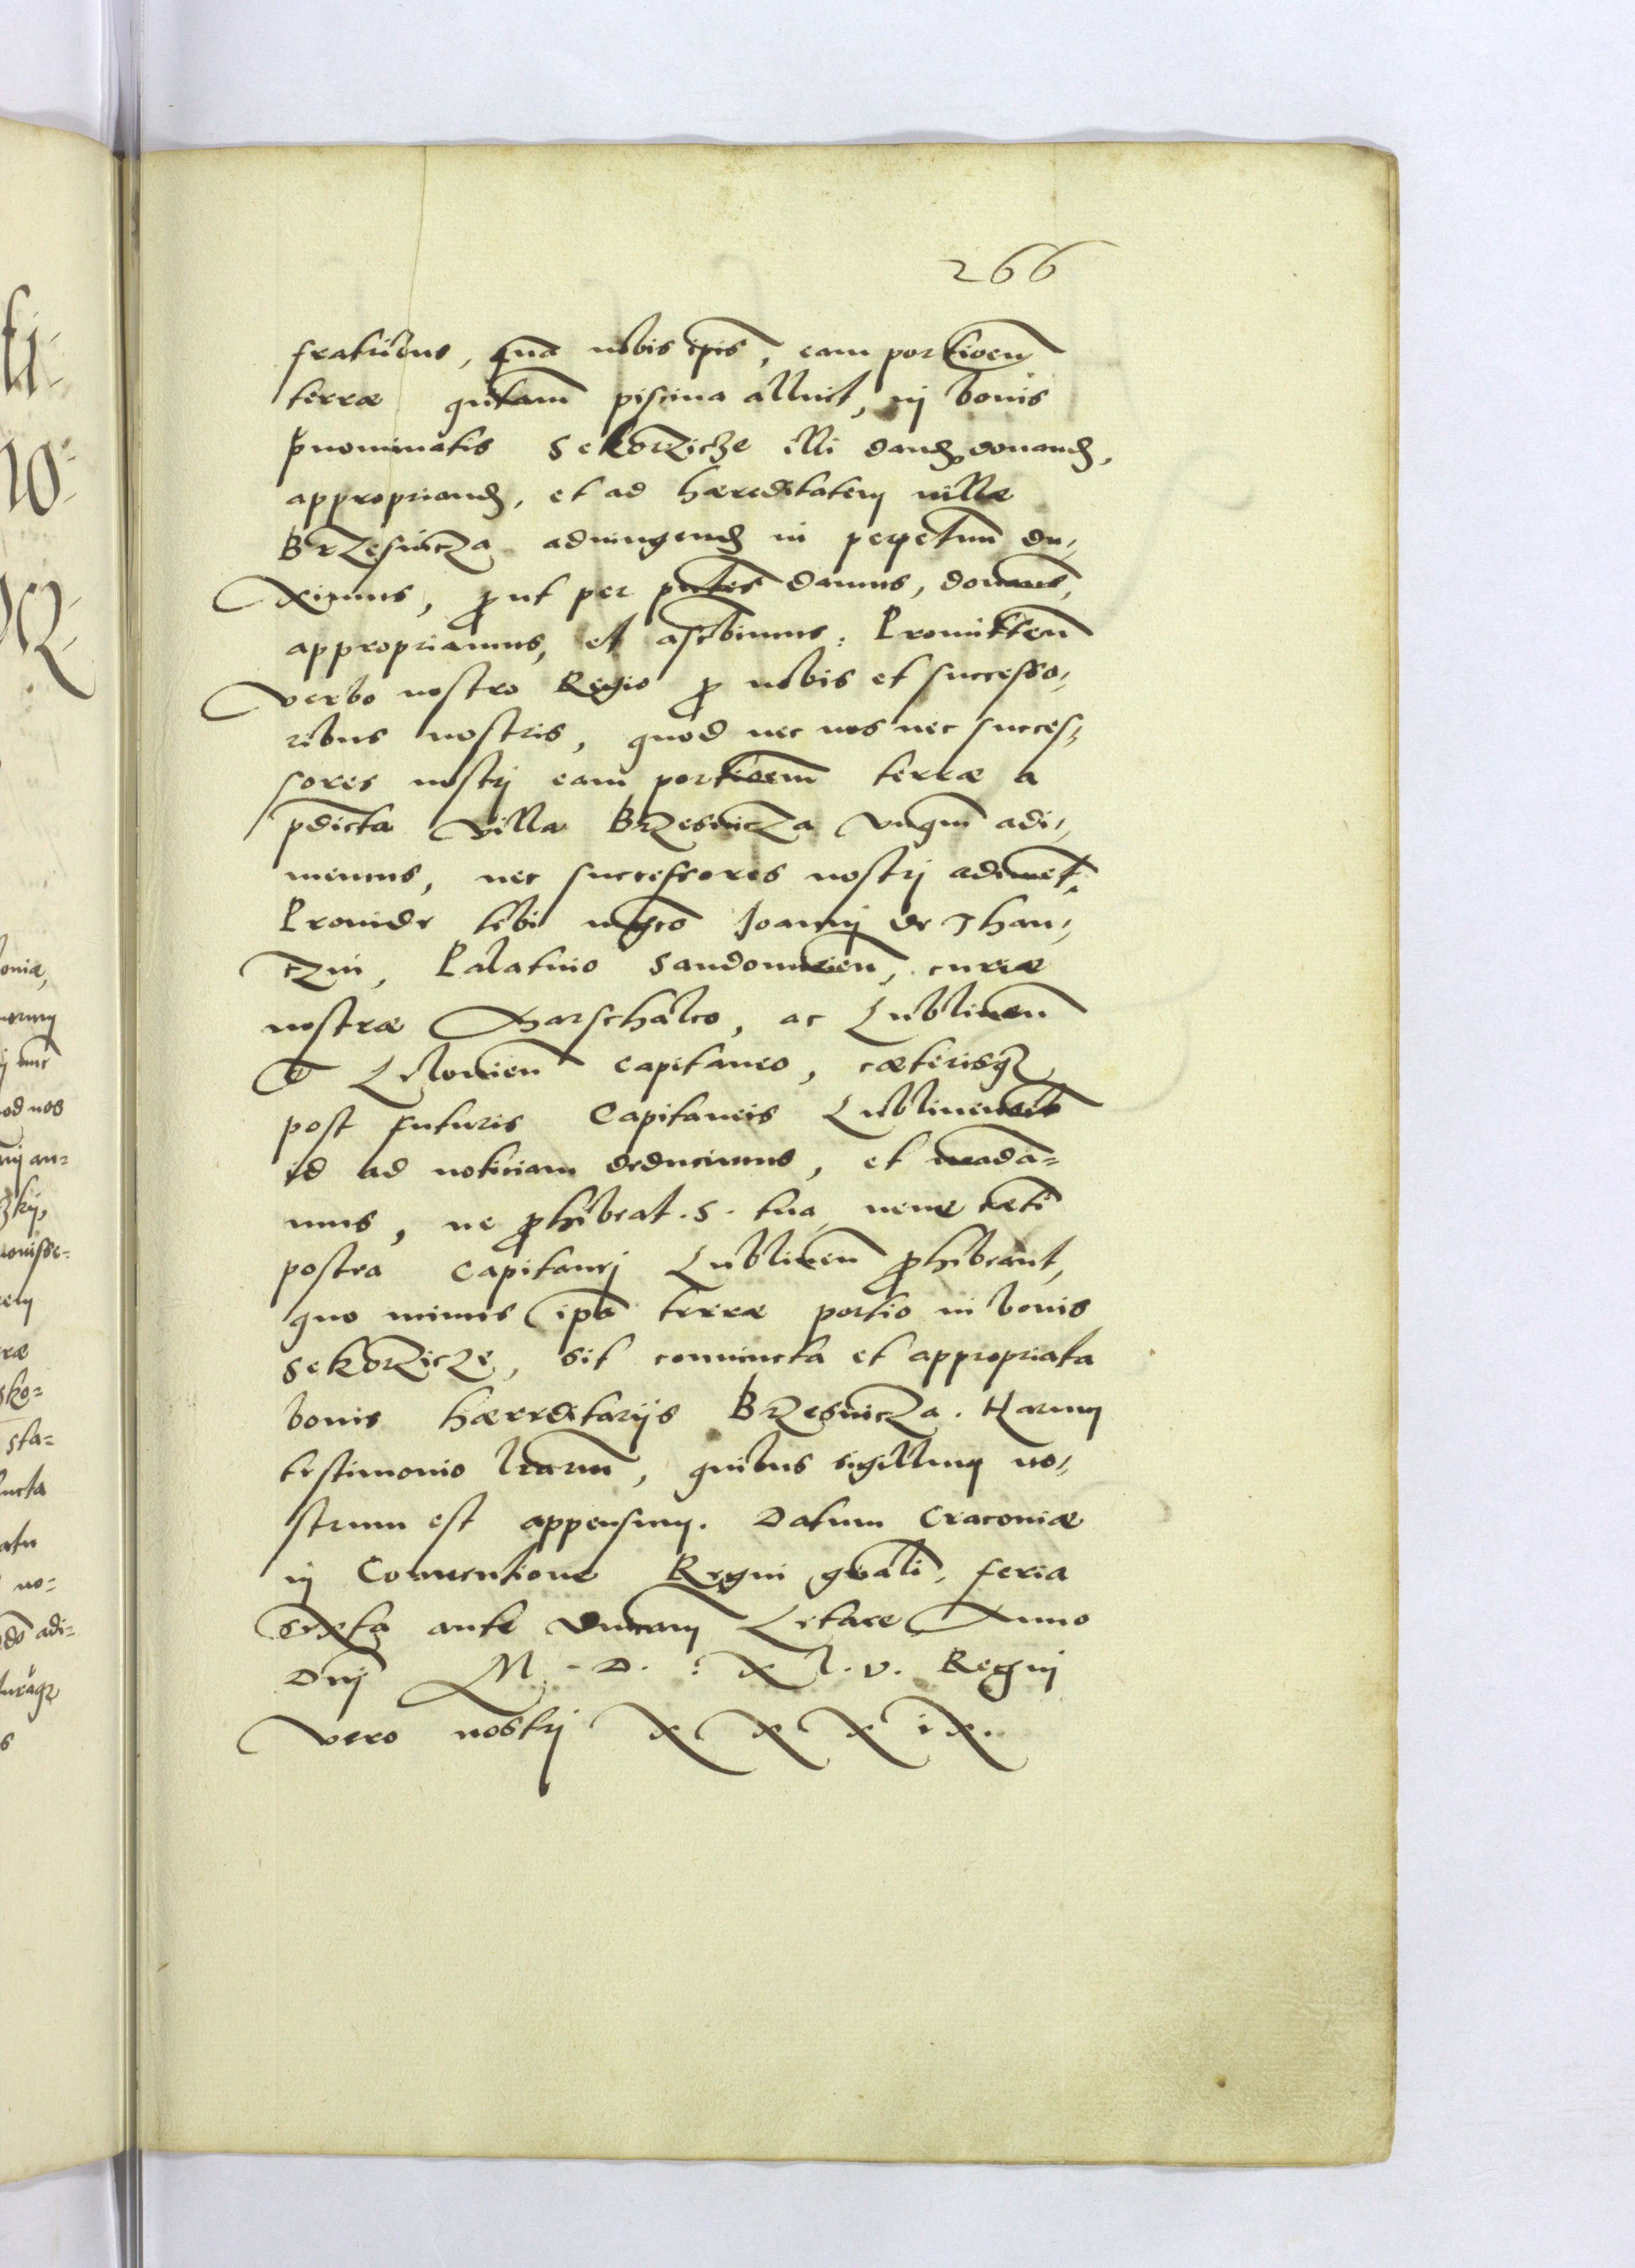 266
fratribus, quã nobis ipis, eam portioem
terræ quãtam piscina alluit, in bonis
pnominatis Sekorzicze illi dand donand,
appropriand, et ad hæreditatem villæ
Brzesnicza adiungend in perpetuũ du-
ximus, prout per pñtes damus, donamus,
appropriamus, et ascbimus: Promitteñ
verbo nostro Regio p nobis et successo-
ribus nostris, quod nec nos nec succes-
sores nostri eam portioem terræ a
pdicta villa Brzesnicza vnquã adi-
memus, nec successores nostri adiment,
Proinde tibi mgco Joanni de Than-
czin, Palatino Sandomirieñ, curiæ
nostræ Marschalco, ac Lublineñ
capitaneo, cæterisqz
post futuris Capitaneis Lublinensib
id ad noticiam deducimus, et mãda-
mus, ne phibeat S. tua, neue cæti
postea Capitanei Lublineñ phibeant,
quo minus ipa terræ portio in bonis
Sekorzicze, sit coniuncta et appropriata
bonis hæreditarijs Brzesnicza. Harum
testimonio lrarum, quibus sigillum no-
strum est appensum. Datum Cracoviæ
in Conuentione Regni gñali, feria
sexta ante dnicam Letare Anno
Dnj M. D. XL.V. Regni
vero nostri XXXIX.
onia,
od nos
sko-
sta-
no-
adi-